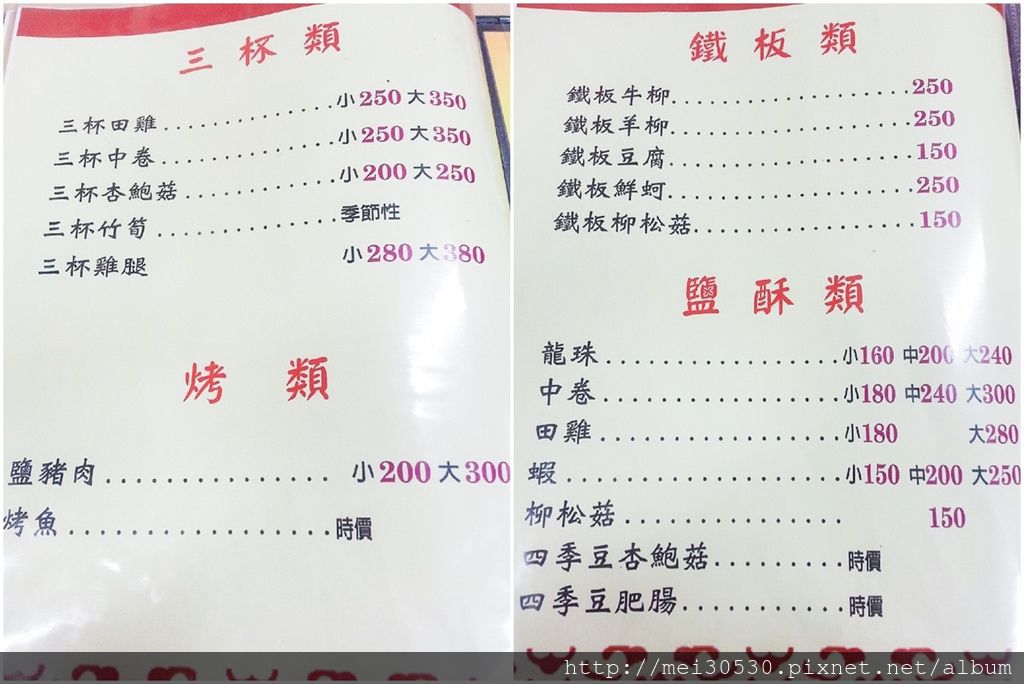 三杯類
三杯田雞..............小250 大350
三杯中卷..............小250 大350
三杯杏鮑菇............小200 大250
三杯竹筍..............季節性
三杯雞腿 小280 大380
烤類
鹽豬肉................小200 大300
烤魚..................時價
鐵板類
鐵板牛柳..................250
鐵板羊柳..................250
鐵板豆腐..................150
鐵板鮮蚵..................250
鐵板柳松菇................150
鹽酥類
龍珠..................小160 中200 大240
中卷..................小180 中240 大300
田雞..................小180 大280
蝦....................小150 中200 大250
柳松菇................150
四季豆杏鮑菇..........時價
四季豆肥腸............時價
http://mei30530.pixnet.net/album